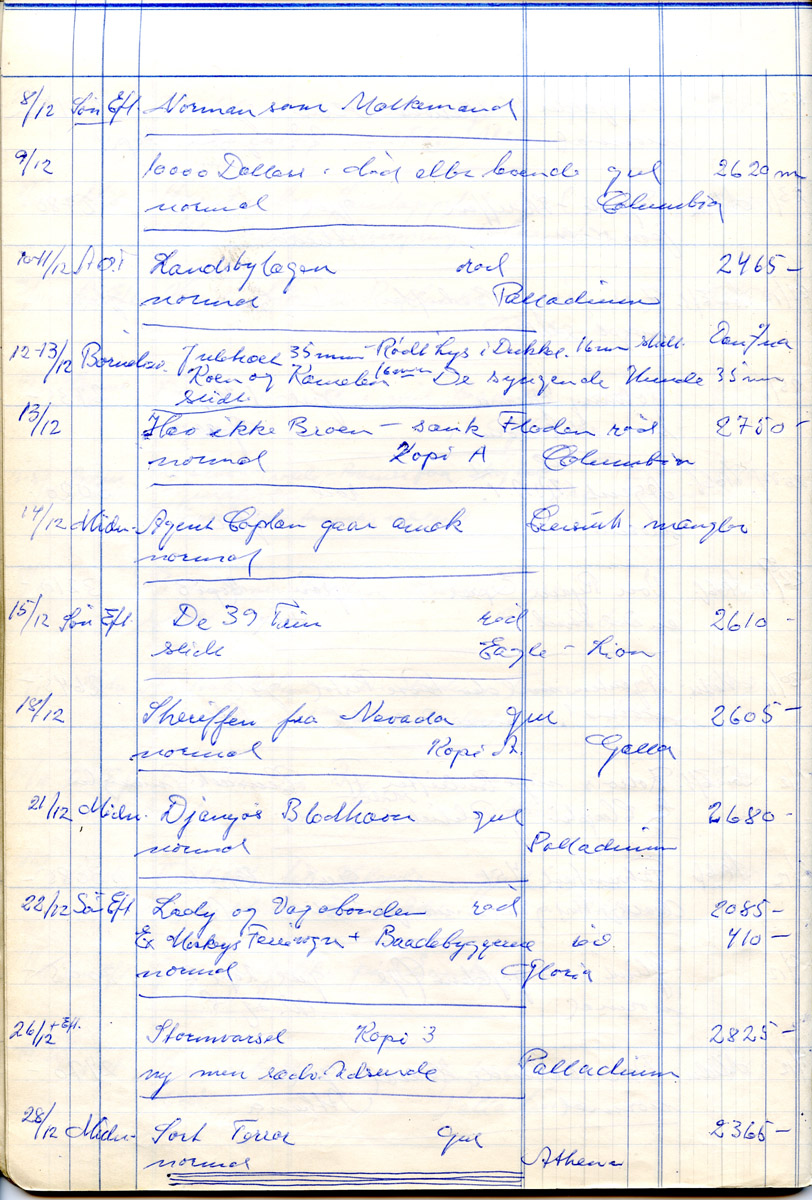 8/12 Søn Eft. Norman som Mælkemand
9/12 10000 Dollars i død eller levende gul 2620 m
normal Columbia
10-11/12 Landsbylægen rød 2465 -
normal Palladium
12-13/12 Børnebio. Julehoel 35 mm - Rødt hys i Dukke. 16 mm slidt.
Koen og Kamelen 16 mm De syngende Hunde 35 mm
slidt.
13/12 Hao ikke Broen - sænk Floden rød 2750 -
normal Kopi A Columbia
14/12 Midn. Agent Caplan gaar amok Censurk. mangler
normal
15/12 Søn Eft. De 39 Trin rød 2610 -
slidt Eagle - Lion
19/12 Sheriffen fra Nevada gul 2605 -
normal Kopi A. Gefa
21/12 Midn. Djangos Blodhævn gul 2680 -
normal Palladium
22/12 Søn Eft Lady og Vagabonden rød 2085 -
Ex Mickys + Baadebyggerne rød. 410 -
normal Gloria
26/12 + Eft. Stormvarsel Kopi 3 2825 -
ny men Palladium
28/12 Midn. Sort Terror gul 2365 -
normal Athena